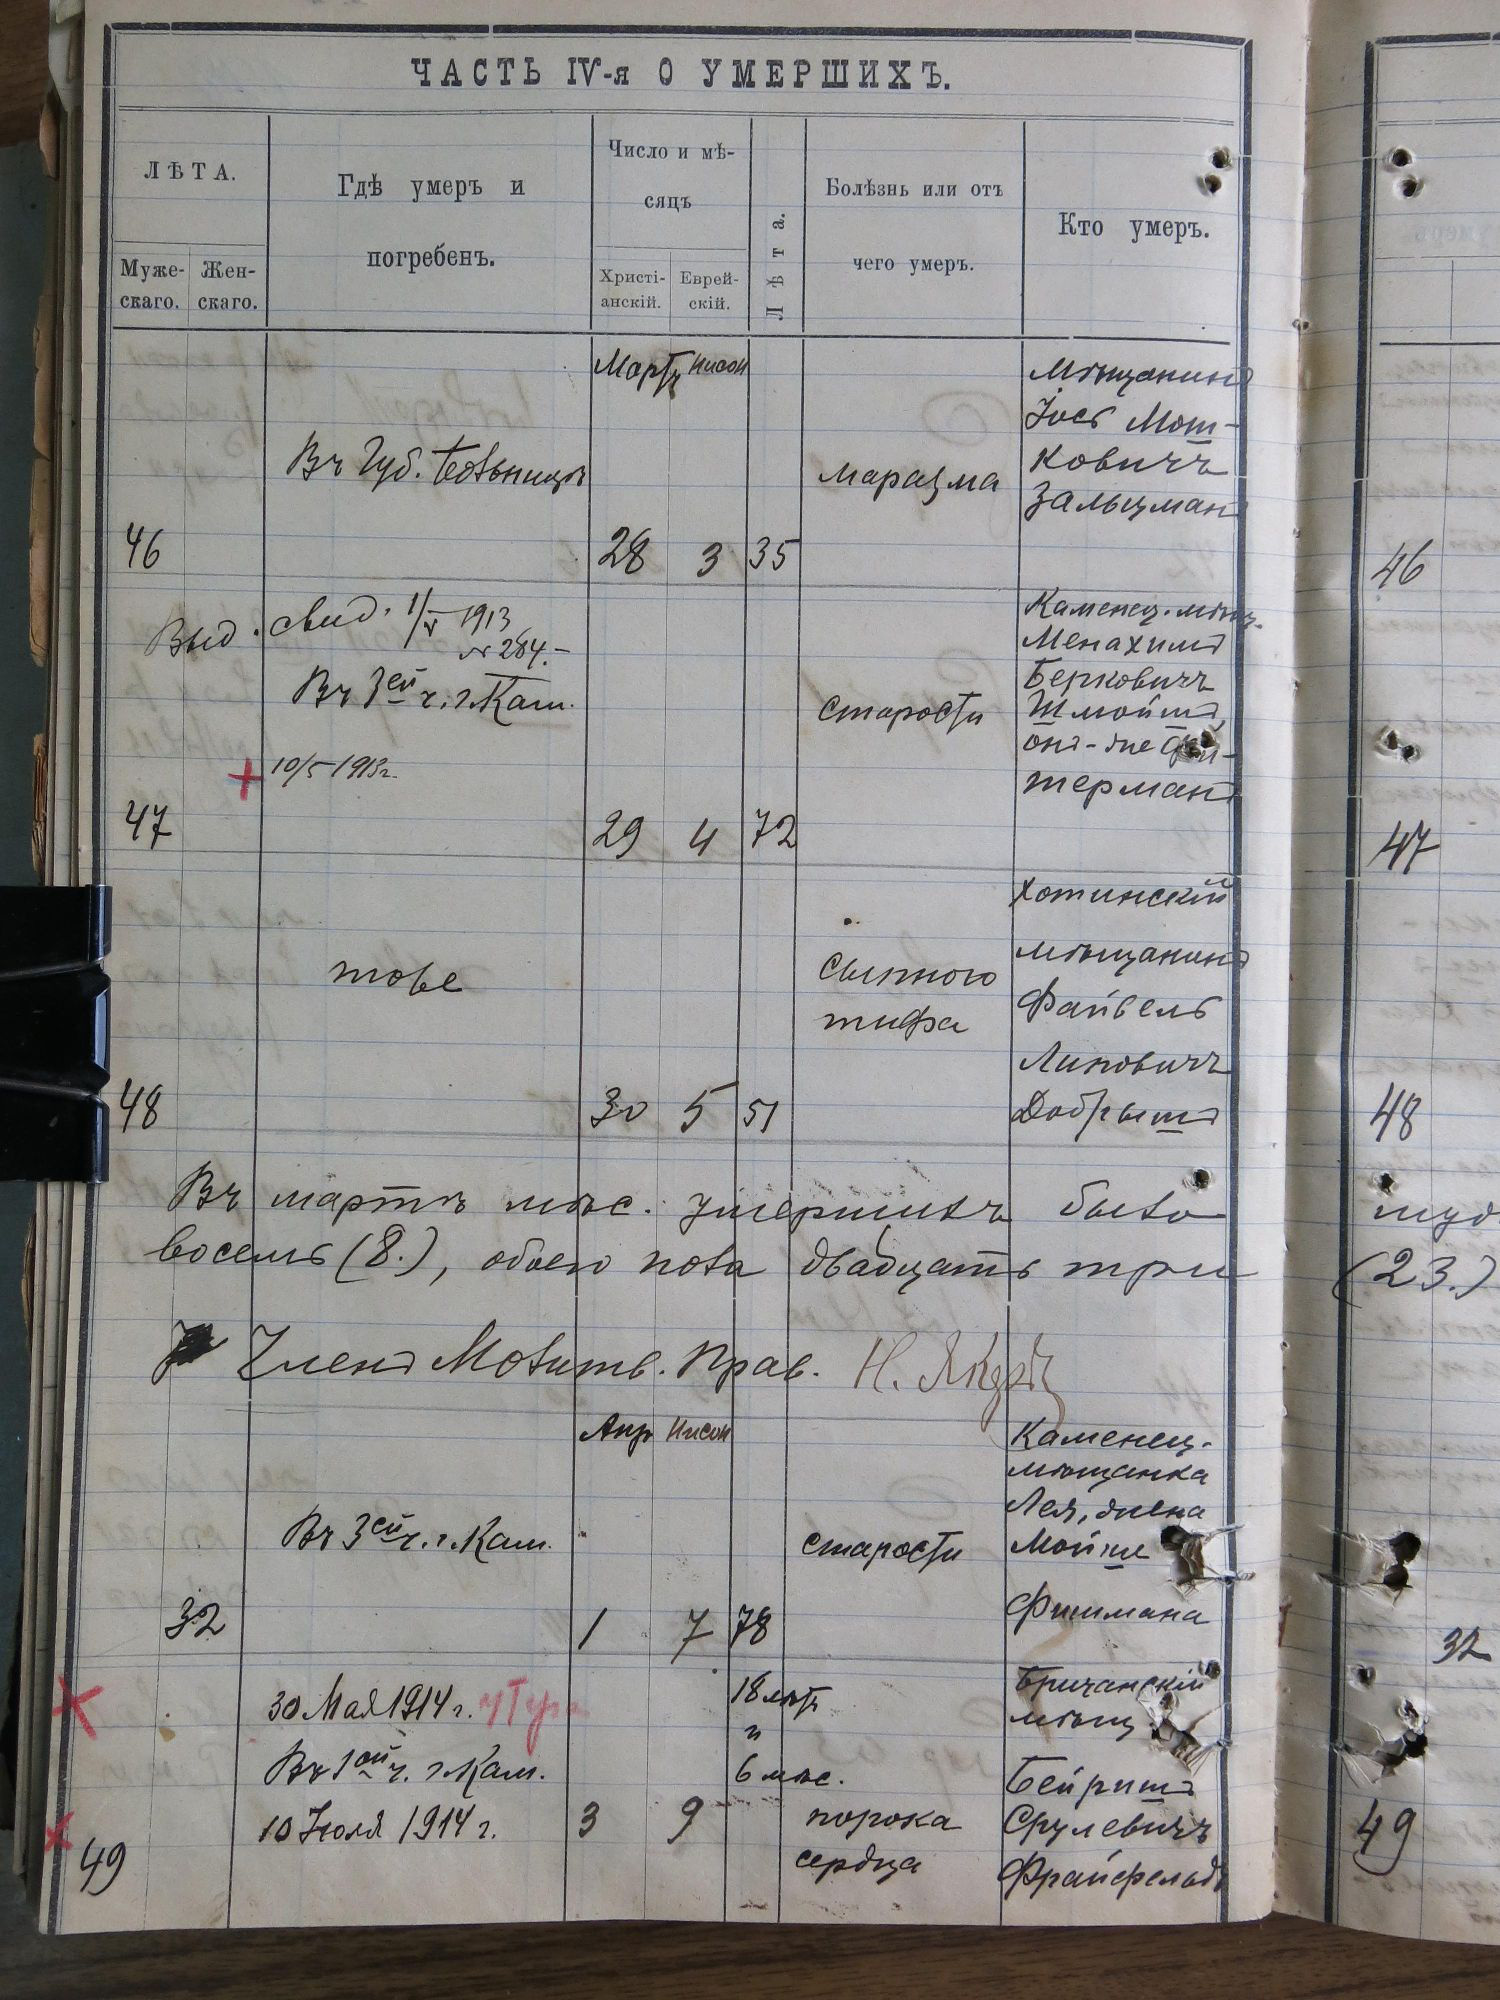 ЧАСТЬ IV-я О УМЕРШИХЪ.
ЛѢТА.
Муже-
скаго.
Жен-
скаго.
Гдѣ умеръ и
погребенъ.
Число и мѣ-
сяцъ
Христі-
анскій.
Еврей-
скій.
Лѣта.
Болѣзнь или отъ
чего умеръ.
Кто умеръ.
Мартъ Нисон
Мѣщанинъ
Іось Мош-
ковичъ
Зальцманъ
Въ Губ. Больницѣ
маразма
46 28 3 35
46
Выд. свид. 1/V 1913
№ 284.-
Въ 3ей ч. г. Кам.
10/5 1913 г.
старости
Каменец. мѣщ.
Менахимъ
Берковичъ
Шмойшъ,
онъ-же
терманъ
47 29 4 72
47
тове
сыпного
тифа
Хотинскій
мѣщанинъ
Файвель
Липовичъ
Добрышъ
48 30 5 51
48
Въ мартѣ мѣс. умершихъ было
восемь (8.), обоего пола двадцать три
(23.)
Членъ Молитв. Прав. Н.
Апр Нисон
Въ 3ей ч. г. Кам.
старости
Каменец-
мѣщанка
Лея, жена
Мойше
Фишмана
32 1 7 78
32
30 Мая 1914 г.
Въ 1ой ч. г. Кам.
10 Іюля 1914 г.
18 лѣтъ
и
6 мѣс.
порока
сердца
Бричанскій
мѣщ
Бейришъ
Срулевичъ
Фрайфельдъ
49 3 9
49